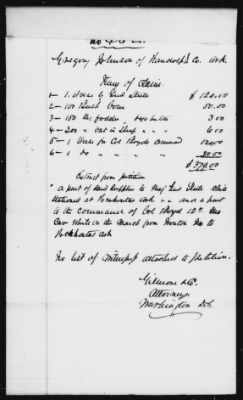 Gregory Johnson of Randolph Co. Ark
Item of Claim.
1 - 1 Horse by Genl Steele $ 120.00
2 - 100 Bush Corn 50.00
3 - 150 lbs fodder 3.00
4 - 200 " oat in Sheaf " " 6.00
5 - 1 Horse for Col Boyds Command
6 - 1 do " "
$ 379.00
Extract from petition
" a part of said supplies to Maj Genl Steele while
stationed at Pocahontas Ark and a part
to the command of Col Boyd 12th Mo
Cav while on the march from Ironton Mo to
Pocahontas Ark
No list of attached to petition.
Gilmore & Co.
Attorneys
Washington D.C.